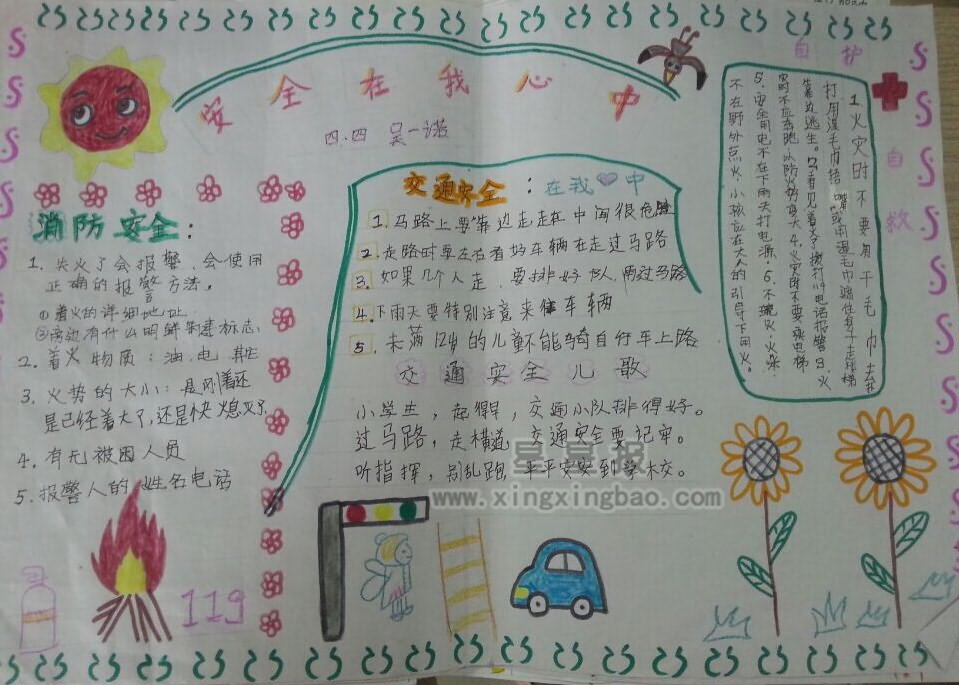 安全在我心中
四.四 吴一诺
消防安全：
1. 失火了会报警，会使用
正确的报警方法，
①着火的详细地址
②旁边有什么明鲜建标志，
2. 着火物质：油、电
3. 火势的大小：是刚着还
是已经着大了，还是快熄灭了
4. 有无被困人员
5. 报警人的姓名电话
119
交通安全：在我中
1. 马路上要靠边走走在中间很危险
2. 走路时要左右看好车辆在走过马路
3. 如果几个人走，要排好队，再过马路
4. 下雨天要特别注意来往车辆
5. 未满12岁的儿童不能骑自行车上路
交通安全儿歌
小学生，起得早，交通小队排得好。
过马路，走横道，交通安全要记牢。
听指挥，别乱跑，平平安安到学校。
自护
自救
1火灾时不要用干毛巾去扑
打用湿毛巾捂嘴或用湿毛巾
靠边逃生。2看见着火了拨打119电话报警3.火
灾时不应乱跑以防火势变大4.火灾时不要乘电梯
5.安全用电不在下雨天打电源。6.不玩火、火柴
不在野外点火，小孩应在大人的引导下用火。
星星报
www.xingxingbao.com